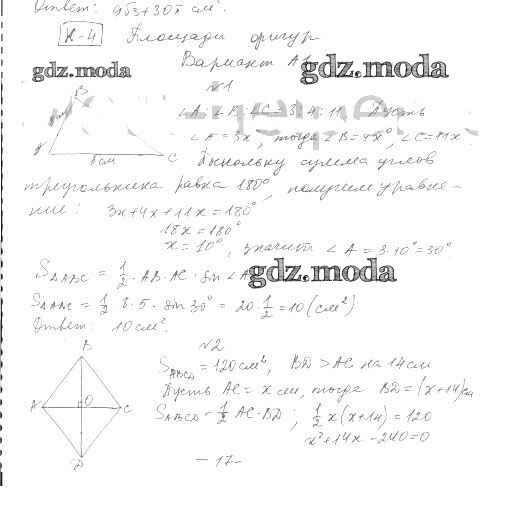 Ответ: 9√3+30π см².
К-4 Площади фигур
Вариант А1
gdz.moda gdz.moda
№1
B
8см
A 5см C
∠A : ∠B : ∠C = 3:4:11. Пусть
∠A = 3x, тогда ∠B = 4x°, ∠C = 11x.
Поскольку сумма углов
треугольника равна 180°, получим уравне-
ние: 3x+4x+11x=180°
18x=180°
x=10°, значит ∠A = 3·10°=30°.
S△ABC = 1/2 · AB · AC · sin ∠A
gdz.moda
S△ABC = 1/2 · 8 · 5 · sin 30° = 20 · 1/2 = 10 (см²)
Ответ: 10 см².
№2
B
A O C
D
S ABCD = 120 см², BD > AC на 14 см
Пусть AC = x см, тогда BD = (x+14) см
S ABCD = 1/2 AC·BD ; 1/2 x(x+14) = 120
x²+14x-240=0
-17-